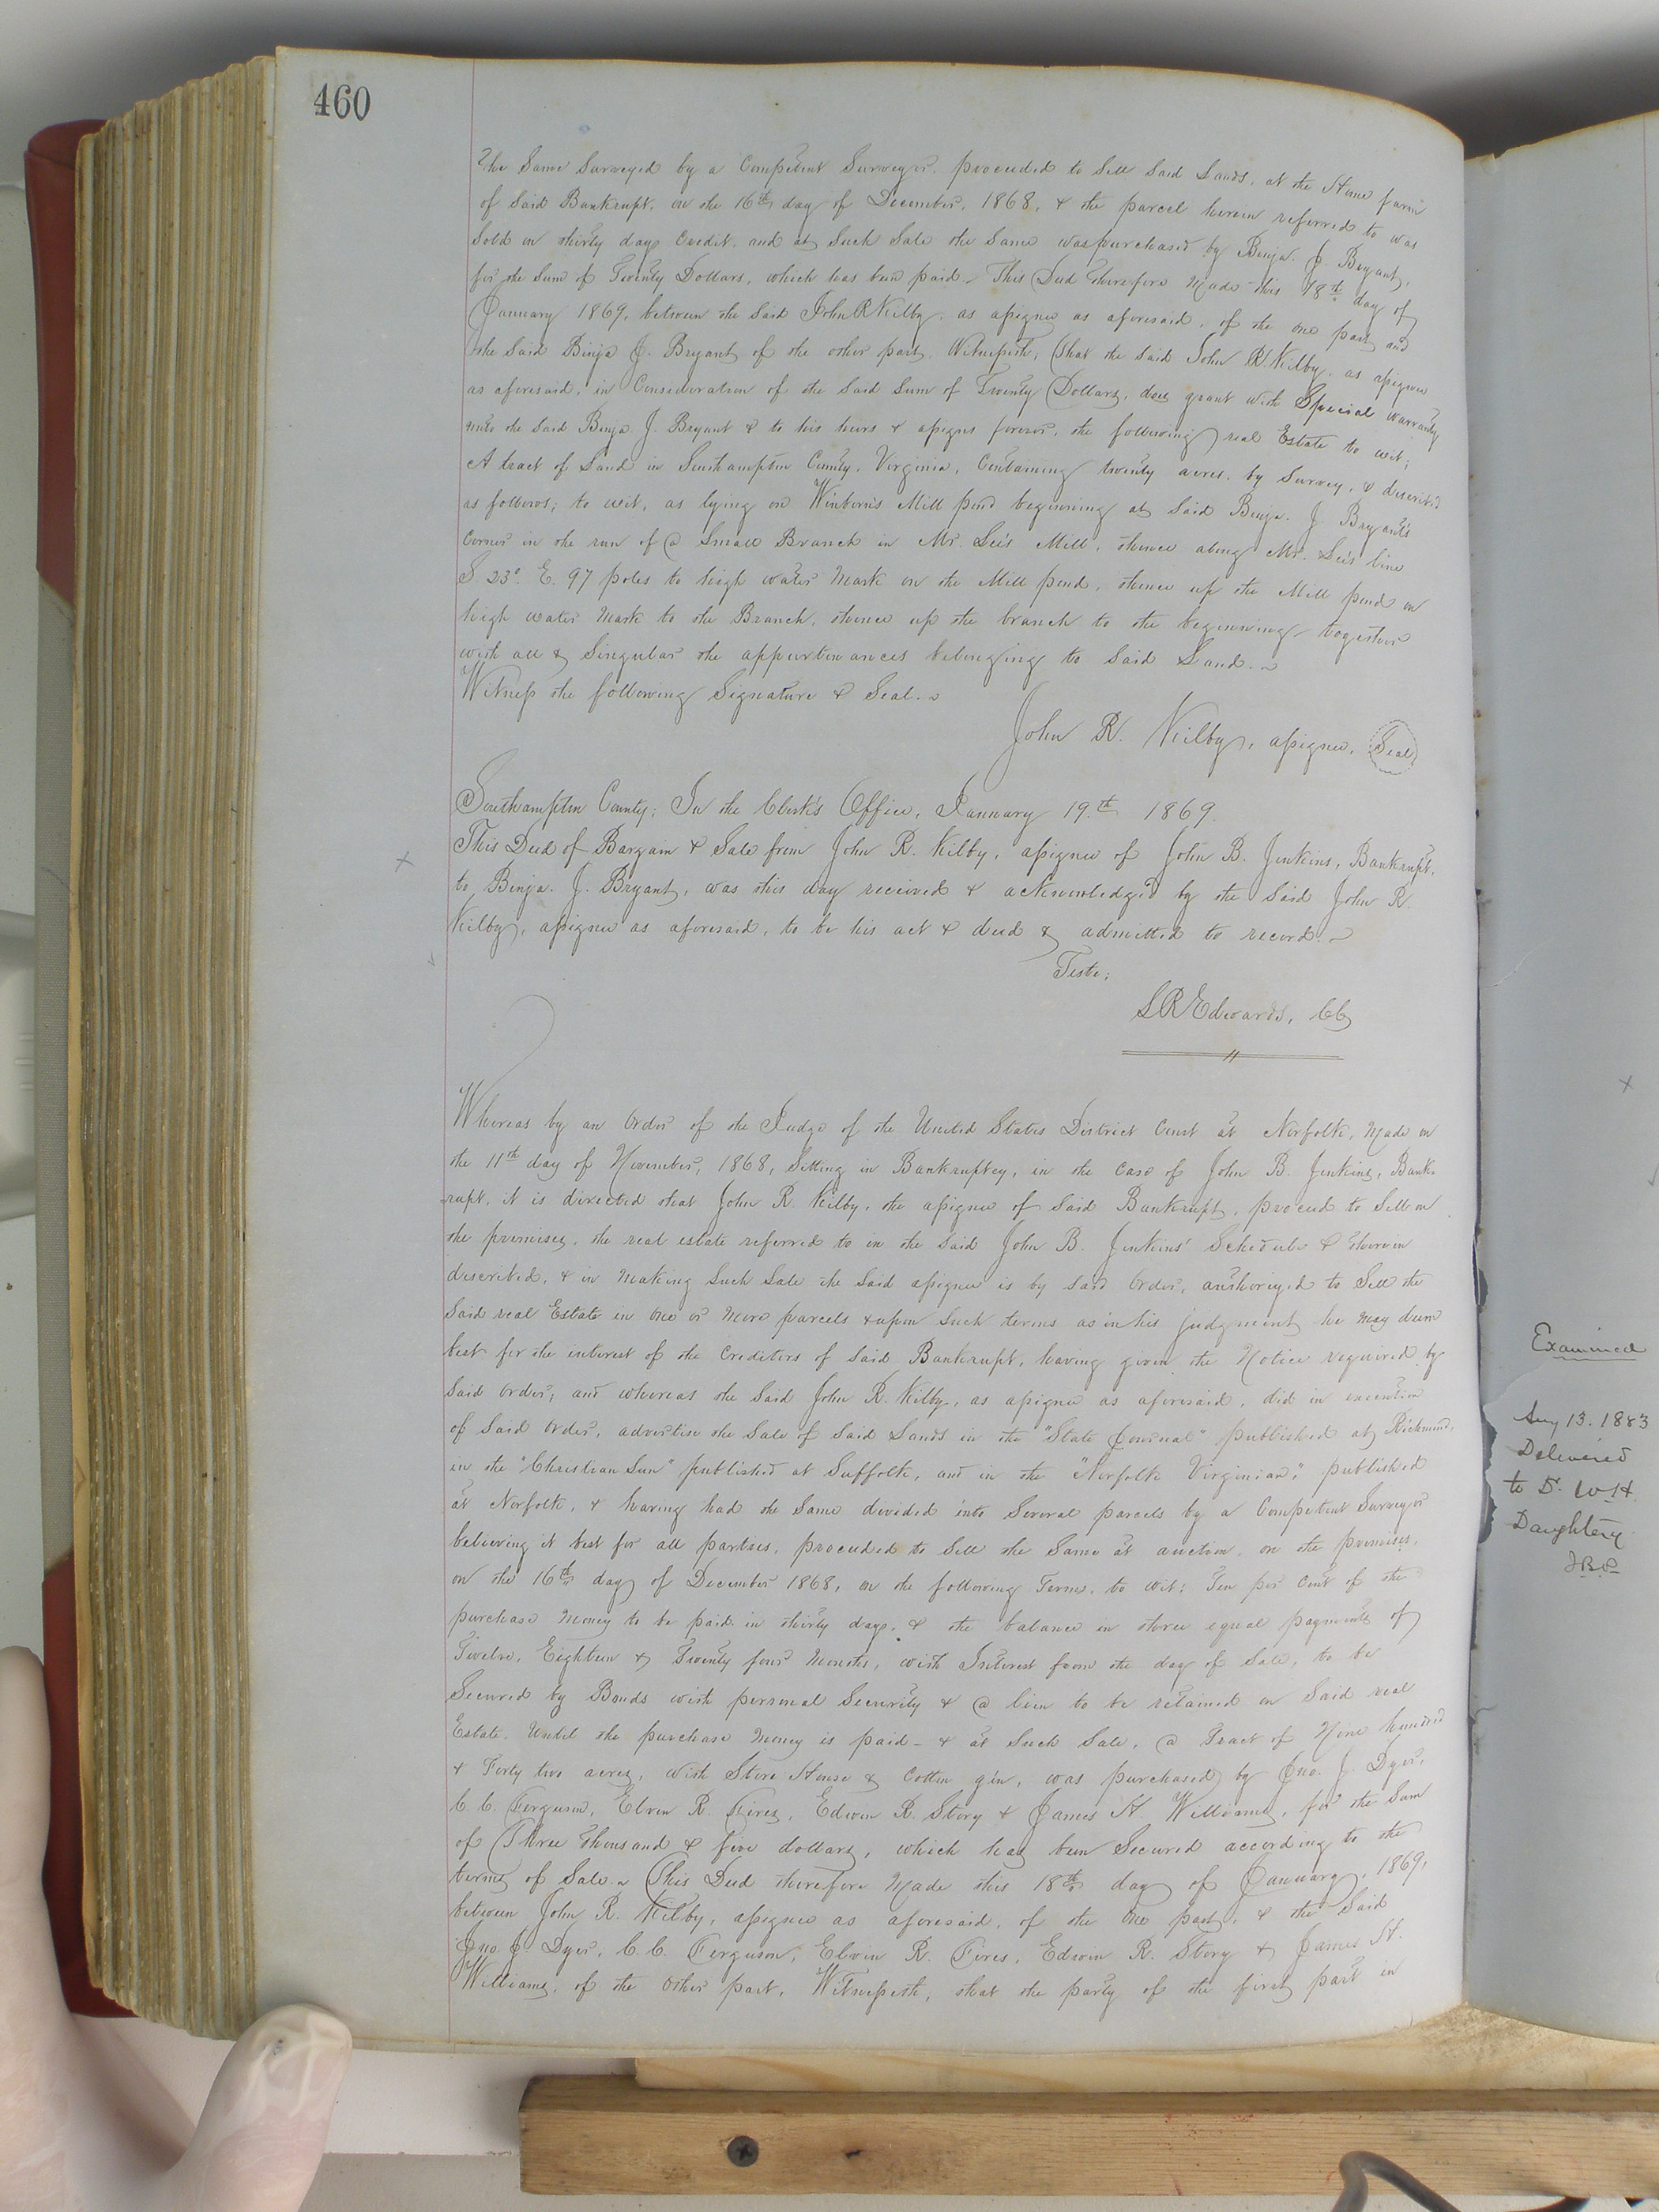 460
the same surveyed by a Competent Surveyor. proceeded to sell said Lands, at the Home farm
of said Bankrupt. on the 16th day of December, 1868, & the parcel herein referred to was
sold on thirty days Credit. and at such sale the same was purchased by Benja. J. Bryant,
for the sum of Twenty Dollars, which has been paid. This Deed therefore made this 18th day of
January 1869, between the said John R Kilby, as assignee as aforesaid, of the one part and
the said Benja J. Bryant of the other part. Witnesseth, that the said John R. Kilby, as assignee
as aforesaid, in Consideration of the said sum of Twenty Dollars, does grant with Special warranty
unto the said Benja. J. Bryant & to his heirs & assigns forever, the following real Estate to wit;
A tract of Land in Southampton County, Virginia, Containing twenty acres, by Survey, & described
as follows; to wit, as lying on Winborn's Mill pond beginning at said Benja. J. Bryant's
Corner in the run of a small Branch in Mr. Lee's Mill, thence along Mr. Lee's line
S. 23° E. 97 poles to high water mark on the Mill pond, thence up the Mill pond on
high water mark to the Branch, thence up the branch to the beginning together
with all & Singular the appurtenances belonging to said Land.
Witness the following Signature & Seal.
John R. Kilby, assignee, Seal
Southampton County; In the Clerk's Office, January 19th 1869.
This Deed of Bargain & Sale from John R. Kilby, assignee of John B. Jenkins, Bankrupt,
to Benja. J. Bryant, was this day received & acknowledged by the said John R.
Kilby, assignee as aforesaid, to be his act & deed & admitted to record.
Teste;
L R Edwards, CC
Whereas by an Order of the Judge of the United States District Court at Norfolk, made on
the 11th day of November, 1868, Sitting in Bankruptcy, in the case of John B. Jenkins, Bank-
rupt, it is directed that John R. Kilby, the assignee of said Bankrupt, proceed to sell on
the premises, the real estate referred to in the said John B. Jenkins' Schedule & therein
described, & in making such sale the said assignee is by said Order, authorized to sell the
said real Estate in one or more parcels & upon such terms as in his judgment he may deem
best for the interest of the Creditors of said Bankrupt, having given the Notice required by
said order; and whereas the said John R. Kilby, as assignee as aforesaid, did in execution
of said order, advertise the sale of said Lands in the "State Journal" published at Richmond,
in the "Christian Sun" published at Suffolk, and in the "Norfolk Virginian," published
at Norfolk, & having had the same divided into several parcels by a Competent Surveyor
believing it best for all parties, proceeded to sell the same at auction, on the premises,
on the 16th day of December 1868, on the following Terms, to wit: Ten per Cent of the
purchase money to be paid in thirty days, & the balance in three equal payments of
Twelve, Eighteen & Twenty four Months, with Interest from the day of sale, to be
Secured by Bonds with personal Security & a lien to be retained on said real
Estate, until the purchase money is paid - & at such sale, a Tract of Nine hundred
& Forty two acres, with Store House & Cotton gin, was purchased by Jno. J. Dyer,
C. C. Ferguson, Elvin R. Fires, Edwin R. Story & James H. Williams, for the sum
of Three thousand & five dollars, which has been Secured according to the
terms of sale. This Deed therefore made this 18th day of January, 1869,
between John R. Kilby, assignee as aforesaid, of the one part, & the said
Jno. J. Dyer, C. C. Ferguson, Elvin R. Fires, Edwin R. Story & James H.
Williams, of the other part, Witnesseth, that the party of the first part in
Examined
Aug 13. 1883
Delivered
to
Daughtery